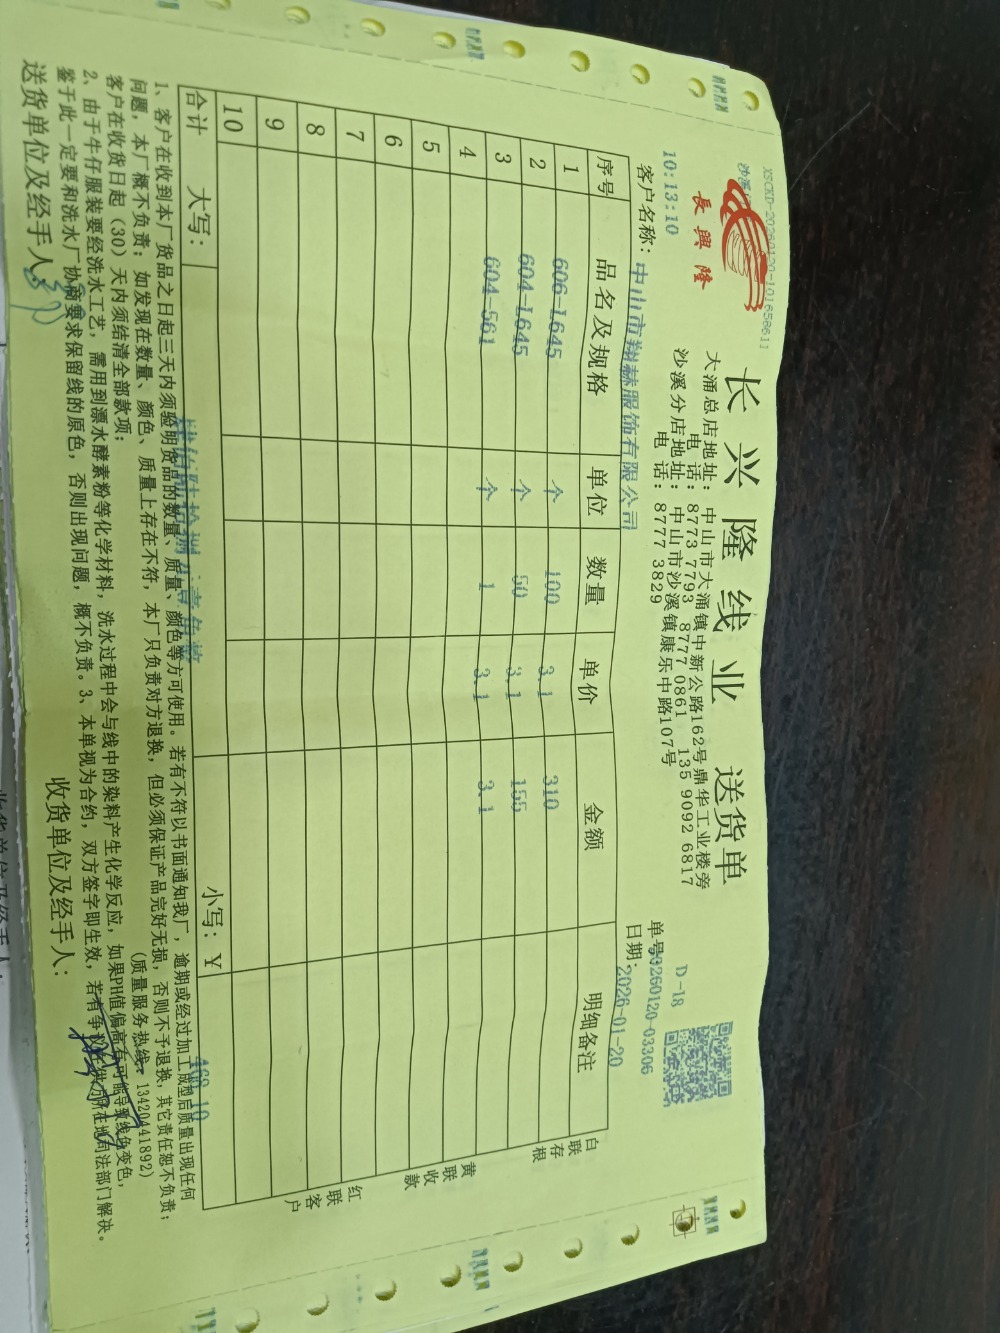 XSCKD-20260120-101658611
沙溪
長興隆
长兴隆线业 送货单
D-18
大涌总店地址: 中山市大涌镇中新公路162号鼎华工业楼旁
电 话: 8773 7793 8777 0861 135 9092 6817
沙溪分店地址: 中山市沙溪镇康乐中路107号
电 话: 8777 3829
10:13:10
单号 20260120-03306
客户名称: 中山市翔赫服饰有限公司
日期: 2026-01-20
序号 品名及规格 单位 数量 单价 金额 明细备注
1 606-L645 个 100 3.1 310
2 604-L645 个 50 3.1 155
3 604-561 个 1 3.1 3.1
4
5
6
7
8
9
10
合计 大写: 小写: ¥ 468.10
白联存根
黄联收款
红联客户
1、客户在收到本厂货品之日起三天内须验明货品的数量、质量、颜色等方可使用。若有不符以书面通知我厂,逾期或经过加工成型后质量出现任何
问题,本厂概不负责;如发现在数量、颜色、质量上存在不符,本厂只负责对方退换,但必须保证产品完好无损,否则不予退换,其它责任恕不负责;
客户在收货日起(30)天内须结清全部款项; (质量服务热线:13420441892)
2、由于牛仔服装要经洗水工艺,需用到漂水酵素粉等化学材料,洗水过程中会与线中的染料产生化学反应,如果PH值偏高有可能导致线色变色,
鉴于此一定要和洗水厂协商要求保留线的原色,否则出现问题,概不负责。3、本单视为合约,双方签字即生效,若有争议在供方所在地司法部门解决。
送货单位及经手人: 收货单位及经手人: